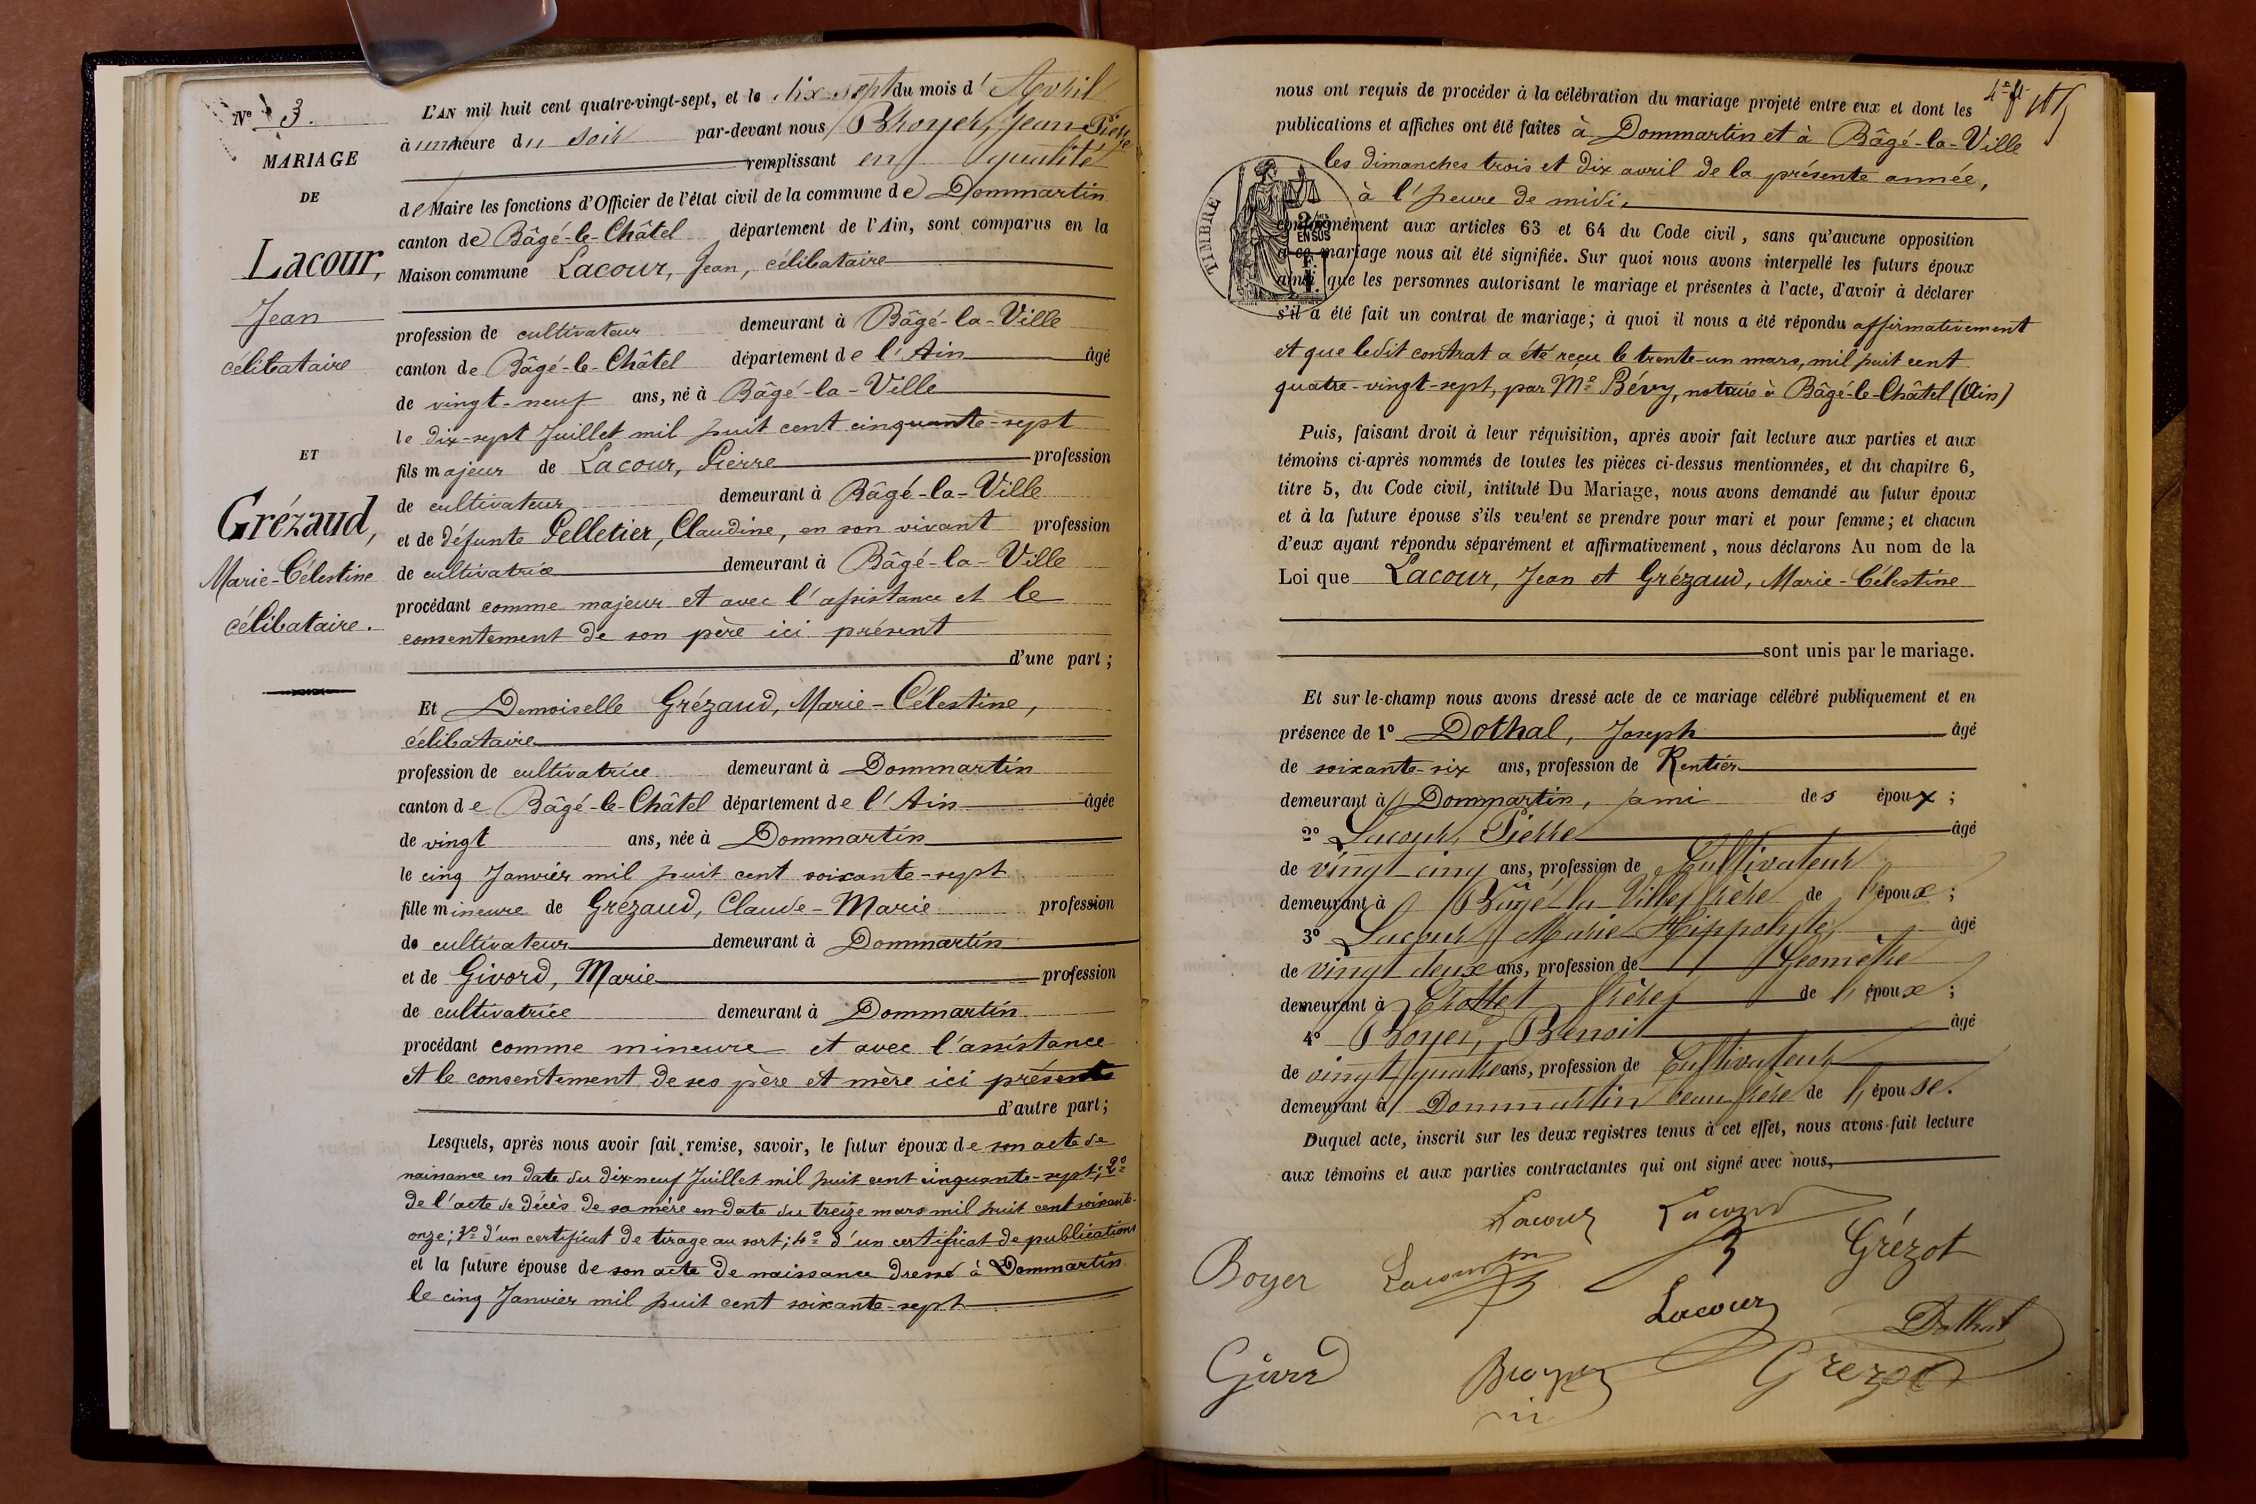 Nº 3.
MARIAGE
DE
Lacour,
Jean
célibataire
ET
Grézaud,
Marie-Célestine
célibataire.
L'AN mil huit cent quatre-vingt-sept, et le dix-sept du mois d'Avril
à une heure du soir par-devant nous Broyer, Jean-Pierre
remplissant en qualité
de Maire les fonctions d'Officier de l'état civil de la commune de Dommartin
canton de Bâgé-le-Châtel département de l'Ain, sont comparus en la
Maison commune Lacour, Jean, célibataire
profession de cultivateur demeurant à Bâgé-la-Ville
canton de Bâgé-le-Châtel département de l'Ain âgé
de vingt-neuf ans, né à Bâgé-la-Ville
le dix-sept Juillet mil huit cent cinquante-sept
fils majeur de Lacour, Pierre profession
de cultivateur demeurant à Bâgé-la-Ville
et de défunte Pelletier, Claudine, en son vivant profession
de cultivatrice demeurant à Bâgé-la-Ville
procédant comme majeur et avec l'assistance et le
consentement de son père ici présent
d'une part;
Et Demoiselle Grézaud, Marie-Célestine,
célibataire
profession de cultivatrice demeurant à Dommartin
canton de Bâgé-le-Châtel département de l'Ain âgée
de vingt ans, née à Dommartin
le cinq Janvier mil huit cent soixante-sept
fille mineure de Grézaud, Claude-Marie profession
de cultivateur demeurant à Dommartin
et de Givord, Marie profession
de cultivatrice demeurant à Dommartin
procédant comme mineure et avec l'assistance
et le consentement de ses père et mère ici présents
d'autre part;
Lesquels, après nous avoir fait remise, savoir, le futur époux de son acte de
naissance en date du dix-neuf Juillet mil huit cent cinquante-sept; 2º
de l'acte de décès de sa mère en date du treize mars mil huit cent soixante-
onze; 3º d'un certificat de tirage au sort; 4º d'un certificat de publications
et la future épouse de son acte de naissance dressé à Dommartin
le cinq Janvier mil huit cent soixante-sept
nous ont requis de procéder à la célébration du mariage projeté entre eux et dont les
publications et affiches ont été faites à Dommartin et à Bâgé-la-Ville
les dimanches trois et dix avril de la présente année,
à l'heure de midi,
TIMBRE
2/10ES
EN SUS
conformément aux articles 63 et 64 du Code civil, sans qu'aucune opposition
à ce mariage nous ait été signifiée. Sur quoi nous avons interpellé les futurs époux
ainsi que les personnes autorisant le mariage et présentes à l'acte, d'avoir à déclarer
s'il a été fait un contrat de mariage; à quoi il nous a été répondu affirmativement
et que ledit contrat a été reçu le trente-un mars, mil huit cent
quatre-vingt-sept, par Mº Bévy, notaire à Bâgé-le-Châtel (Ain)
Puis, faisant droit à leur réquisition, après avoir fait lecture aux parties et aux
témoins ci-après nommés de toutes les pièces ci-dessus mentionnées, et du chapitre 6,
titre 5, du Code civil, intitulé Du Mariage, nous avons demandé au futur époux
et à la future épouse s'ils veulent se prendre pour mari et pour femme; et chacun
d'eux ayant répondu séparément et affirmativement, nous déclarons Au nom de la
Loi que Lacour, Jean et Grézaud, Marie-Célestine
sont unis par le mariage.
Et sur-le-champ nous avons dressé acte de ce mariage célébré publiquement et en
présence de 1º Dothal, Joseph âgé
de soixante-six ans, profession de Rentier
demeurant à Dommartin, ami des époux;
2º Lacour, Pierre âgé
de vingt-cinq ans, profession de Cultivateur
demeurant à Bâgé-la-Ville, frère de l'époux;
3º Lacour, Marie Hippolyte, âgé
de vingt deux ans, profession de Géomètre
demeurant à Crottet frère de l'époux;
4º Boyer, Benoit âgé
de vingt-quatre ans, profession de Cultivateur
demeurant à Dommartin beau-frère de l'épouse.
Duquel acte, inscrit sur les deux registres tenus à cet effet, nous avons fait lecture
aux témoins et aux parties contractantes qui ont signé avec nous,
Lacour Lacour
Boyer Lacour Grézot
Lacour Dothal
Broyer Grezot